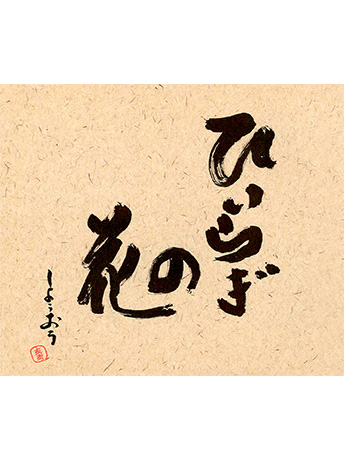 ひいらぎ
の
花
しょうおう